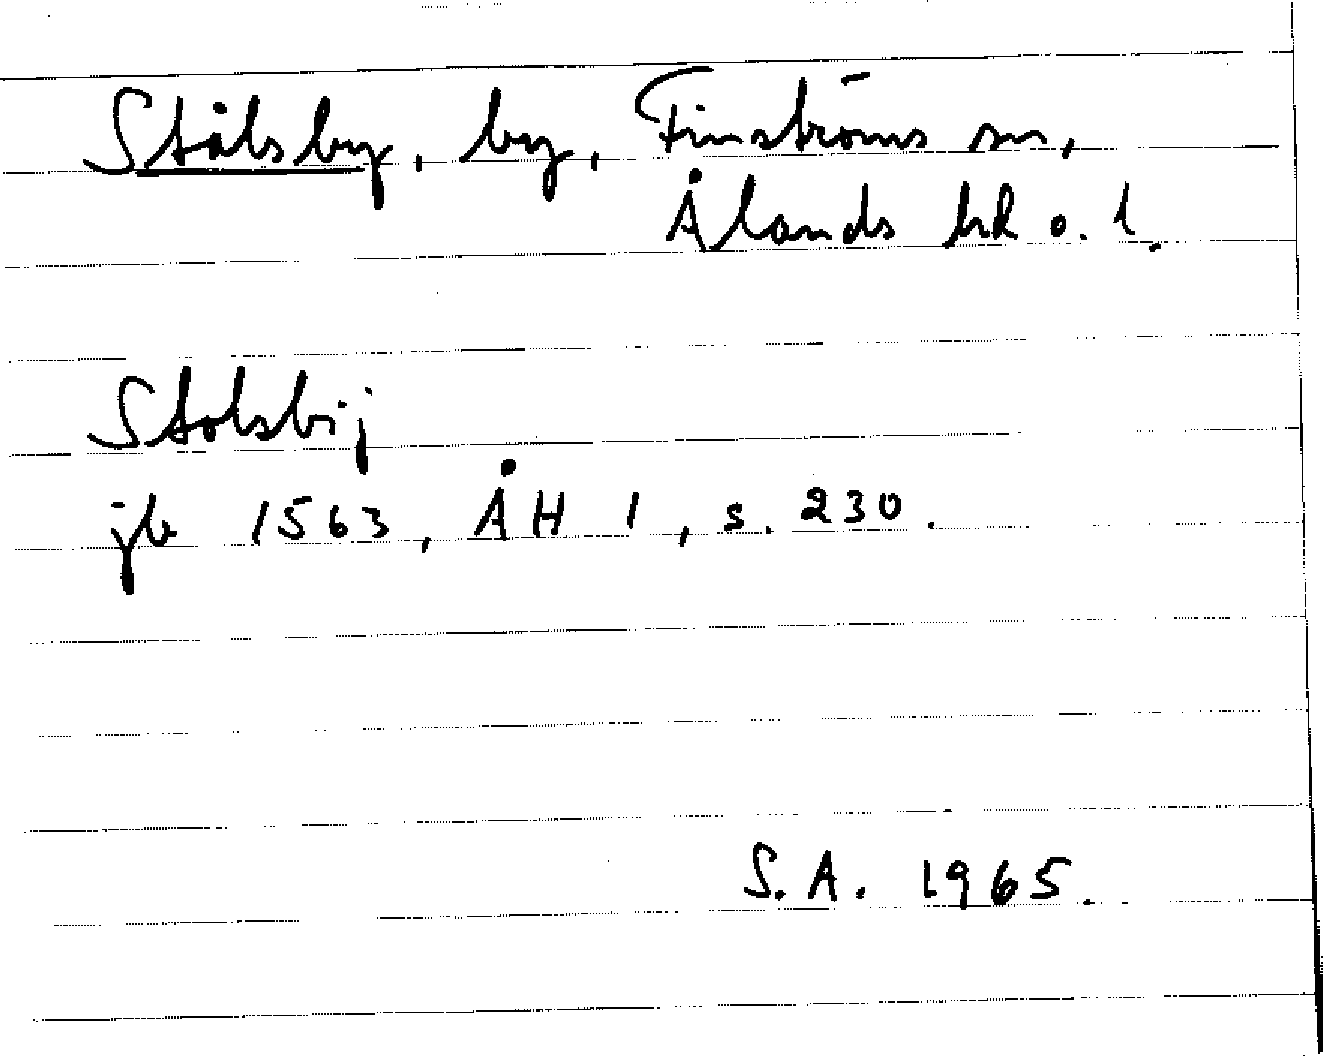 Stålsby, by, Finströms sn,
Ålands hd o. l.
Stolsbij
jb 1563, ÅH 1, s. 230.
S.A. 1965.